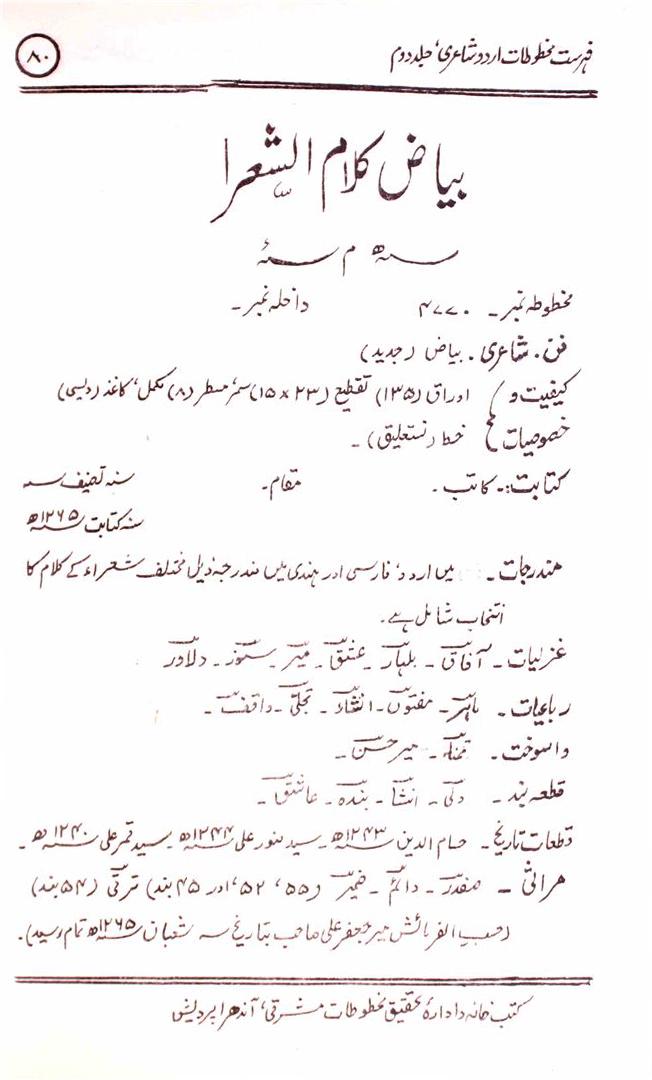 فہرست مخطوطات اردو شاعری، جلد دوم
۸۰
بیاض کلام الشعرا
سنہ ھ م سنہ ء
مخطوطہ نمبر۔ ۴۷۷۰ داخلہ نمبر۔
فن۔ شاعری۔ بیاض (جدید)
کیفیت و اوراق (۱۳۵) تقطیع (۲۳ × ۱۵) سمر مسطر (۸) مکمل، کاغذ (دیسی)
خصوصیات خط (نستعلیق)۔
کتابت:۔ کاتب۔ مقام۔ سنہ تصنیف سہ
سنہ کتابت ۱۲۶۵ھ
مندرجات۔ میں اردو، فارسی اور ہندی میں مندرجہ ذیل مختلف شعراء کے کلام کا
انتخاب شامل ہے۔
غزلیات۔ آفاق۔ بلہار۔ عشق۔ میر۔ سوز۔ دلاور
رباعیات۔ ماہر۔ مفتوں۔ انشاء۔ تجلی۔ واقف۔
واسوخت۔ تمنا۔ میر حسن۔
قطعہ بند۔ ولی۔ انشا۔ بندہ۔ عاشق۔
قطعات تاریخ۔ حسام الدین ۱۲۴۳ھ۔ سید منور علی ۱۲۴۴ھ۔ سید قمر علی ۱۲۴۰ھ۔
مراثی۔ صفدر۔ دائم۔ ضمیر (۵۵، ۵۲، اور ۴۵ بند) ترقی (۵۴ بند)
(حسب الفرمائش میر جعفر علی صاحب بتاریخ سہ شعبان ۱۲۶۵ھ تمام رسید)۔
کتب خانہ و ادارۂ تحقیق مخطوطات مشرقی، آندھرا پردیش